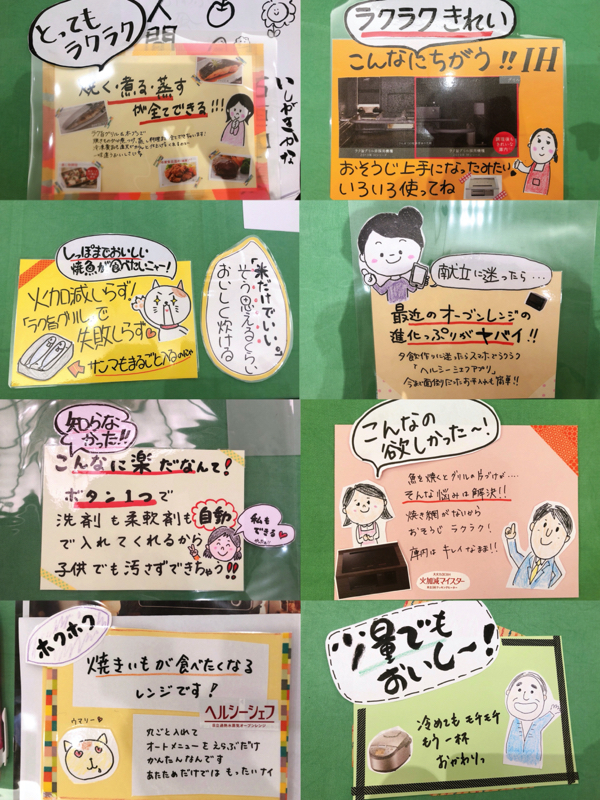 とっても
ラクラク
人間
いしがきかな
焼く・煮る・蒸す
が全てできる!!!
ラクラクきれい
こんなにちがう!!IH
おそうじ上手になったみたい
いろいろ使ってね
しっぽまでおいしい
焼魚が食べたいニャー!
火加減しらず!
「ラク旨グリル」で
失敗しらず
サンマもまるごと入るのニャ
「米だけでいい。」
そう思えるくらい
おいしく炊ける
献立に迷ったら…
最近のオーブンレンジの
進化っぷりがヤバイ!!
夕飯作りに迷ったらスマホでラクラク
「ヘルシーシェフアプリ」
今まで面倒だったお手入れも簡単!!
知らな
かった!!
こんなに楽だなんて!
ボタン1つで
洗剤も柔軟剤も自動
で入れてくれるから
子供でも汚さずできちゃう!!
私も
できる
こんなの
欲しかった〜!
魚を焼くとグリルの片づけが….
そんな悩みは解決!!
焼き網がないから
おそうじ ラクラク!
庫内は キレイなまま!!
火加減マイスター
ホクホク
焼きいもが食べたくなる
レンジです!
ヘルシーシェフ
日立過熱水蒸気オーブンレンジ
ウマリー
丸ごと入れて
オートメニューをえらぶだけ
かんたんなんです
あたためだけでは もったいナイ
少量でも
おいし〜!
冷めても モチモチ
もう一杯
おかわりっ